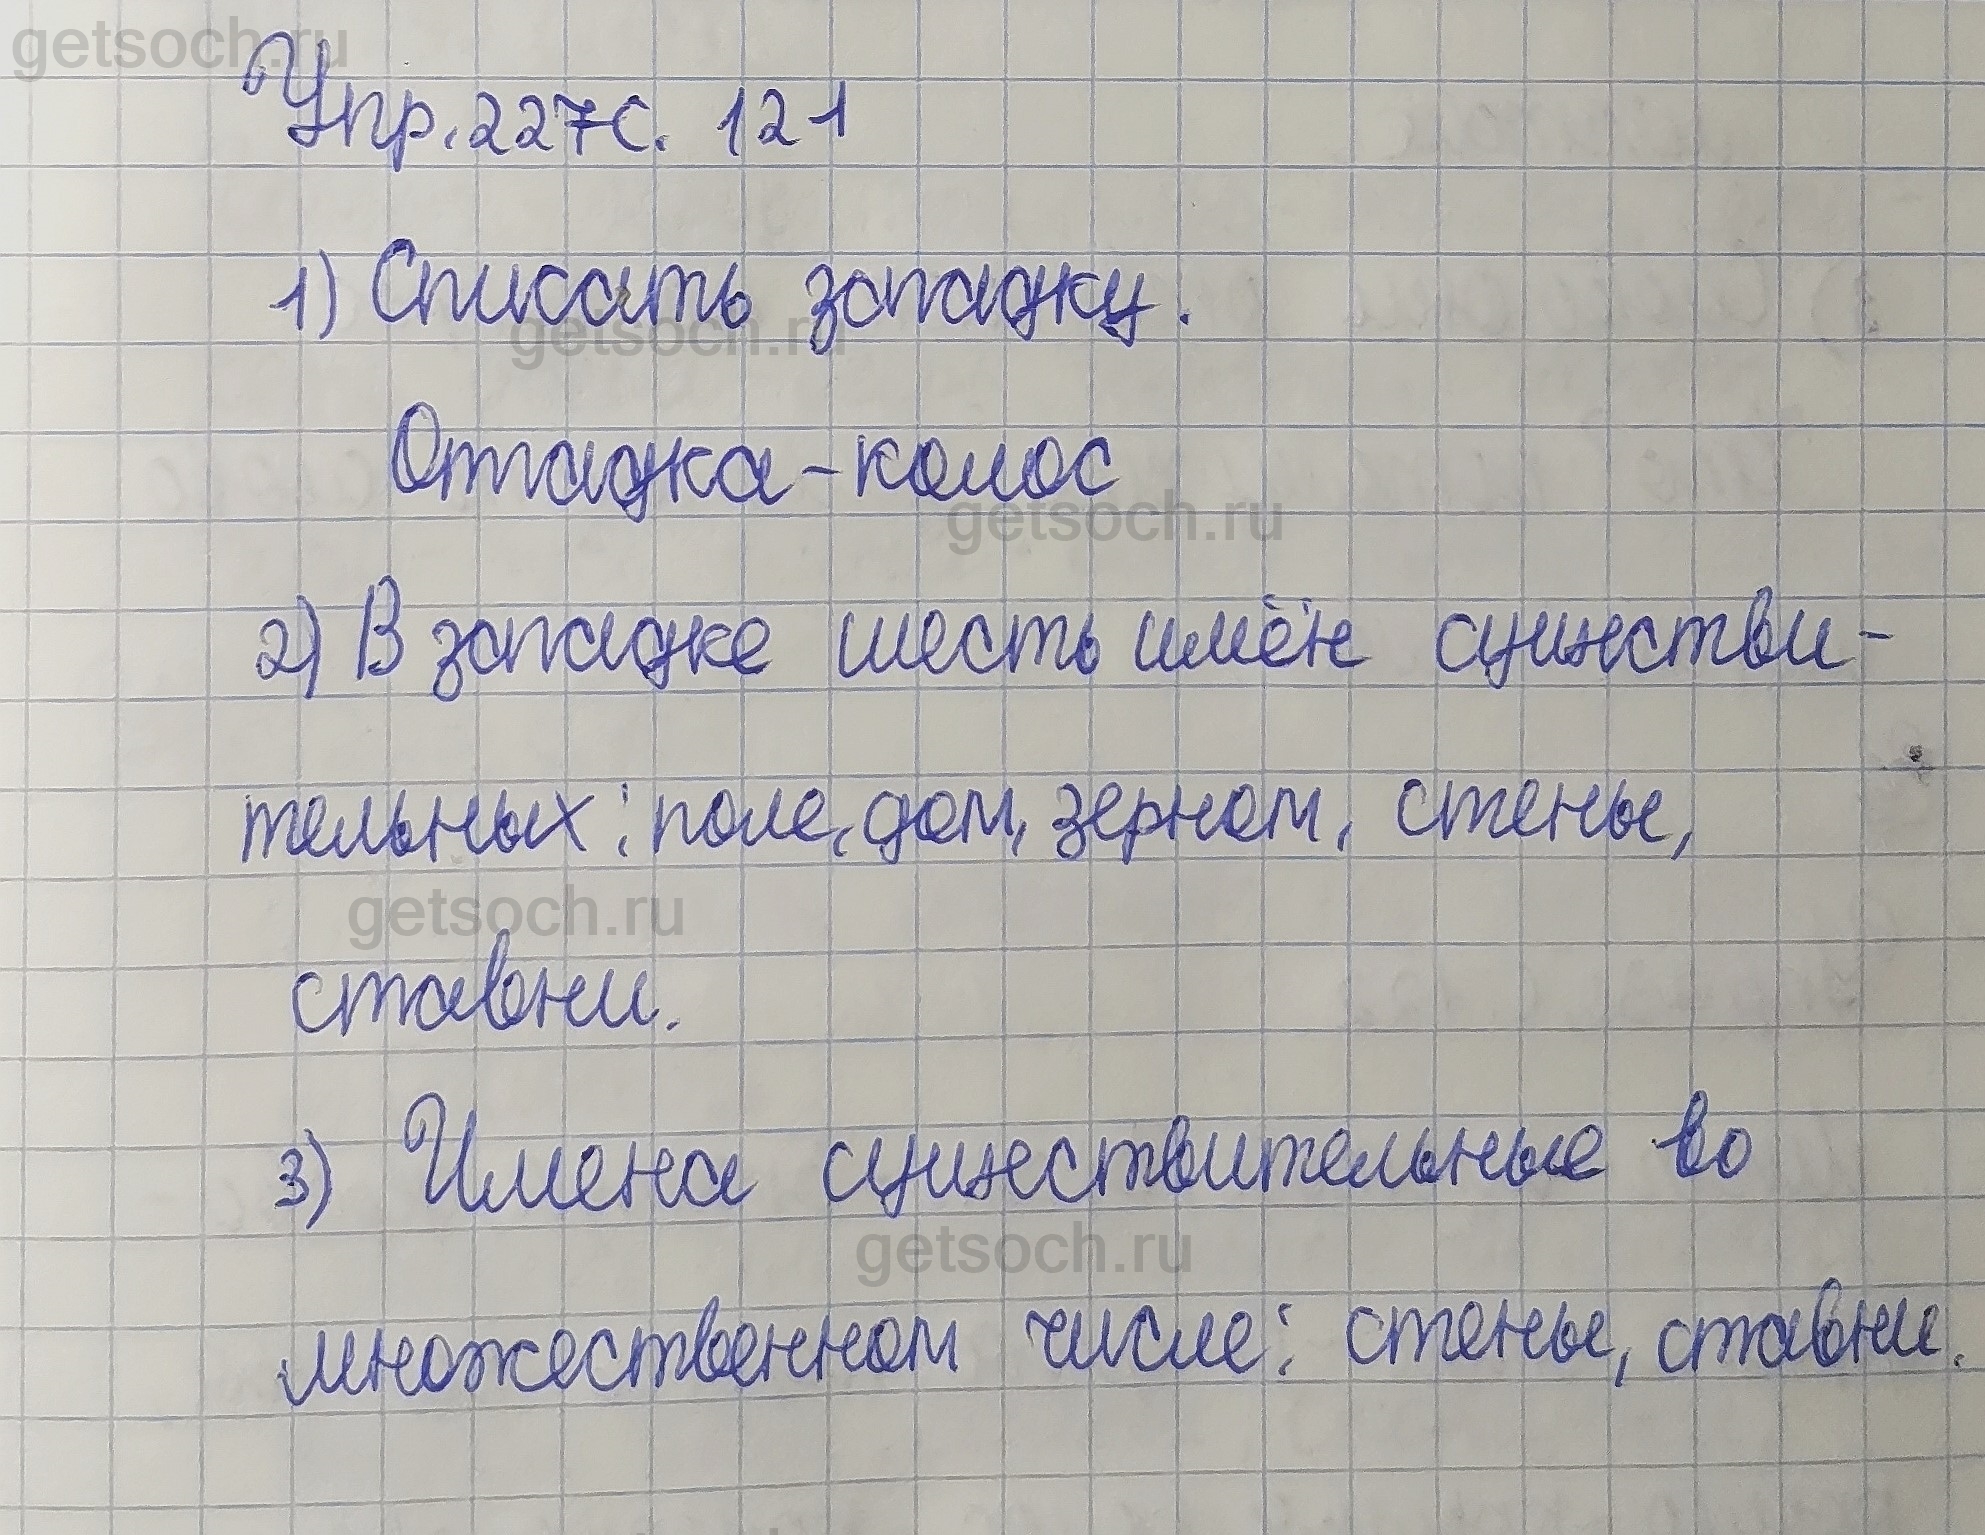 getsoch.ru
Упр. 227 С. 121
1) Списать загадку.
getsoch.ru
Отгадка - колос
getsoch.ru
2) В загадке шесть имён существи-
тельных: поле, дом, зерном, стены,
getsoch.ru
ставни.
3) Имена существительные во
getsoch.ru
множественном числе: стены, ставни.